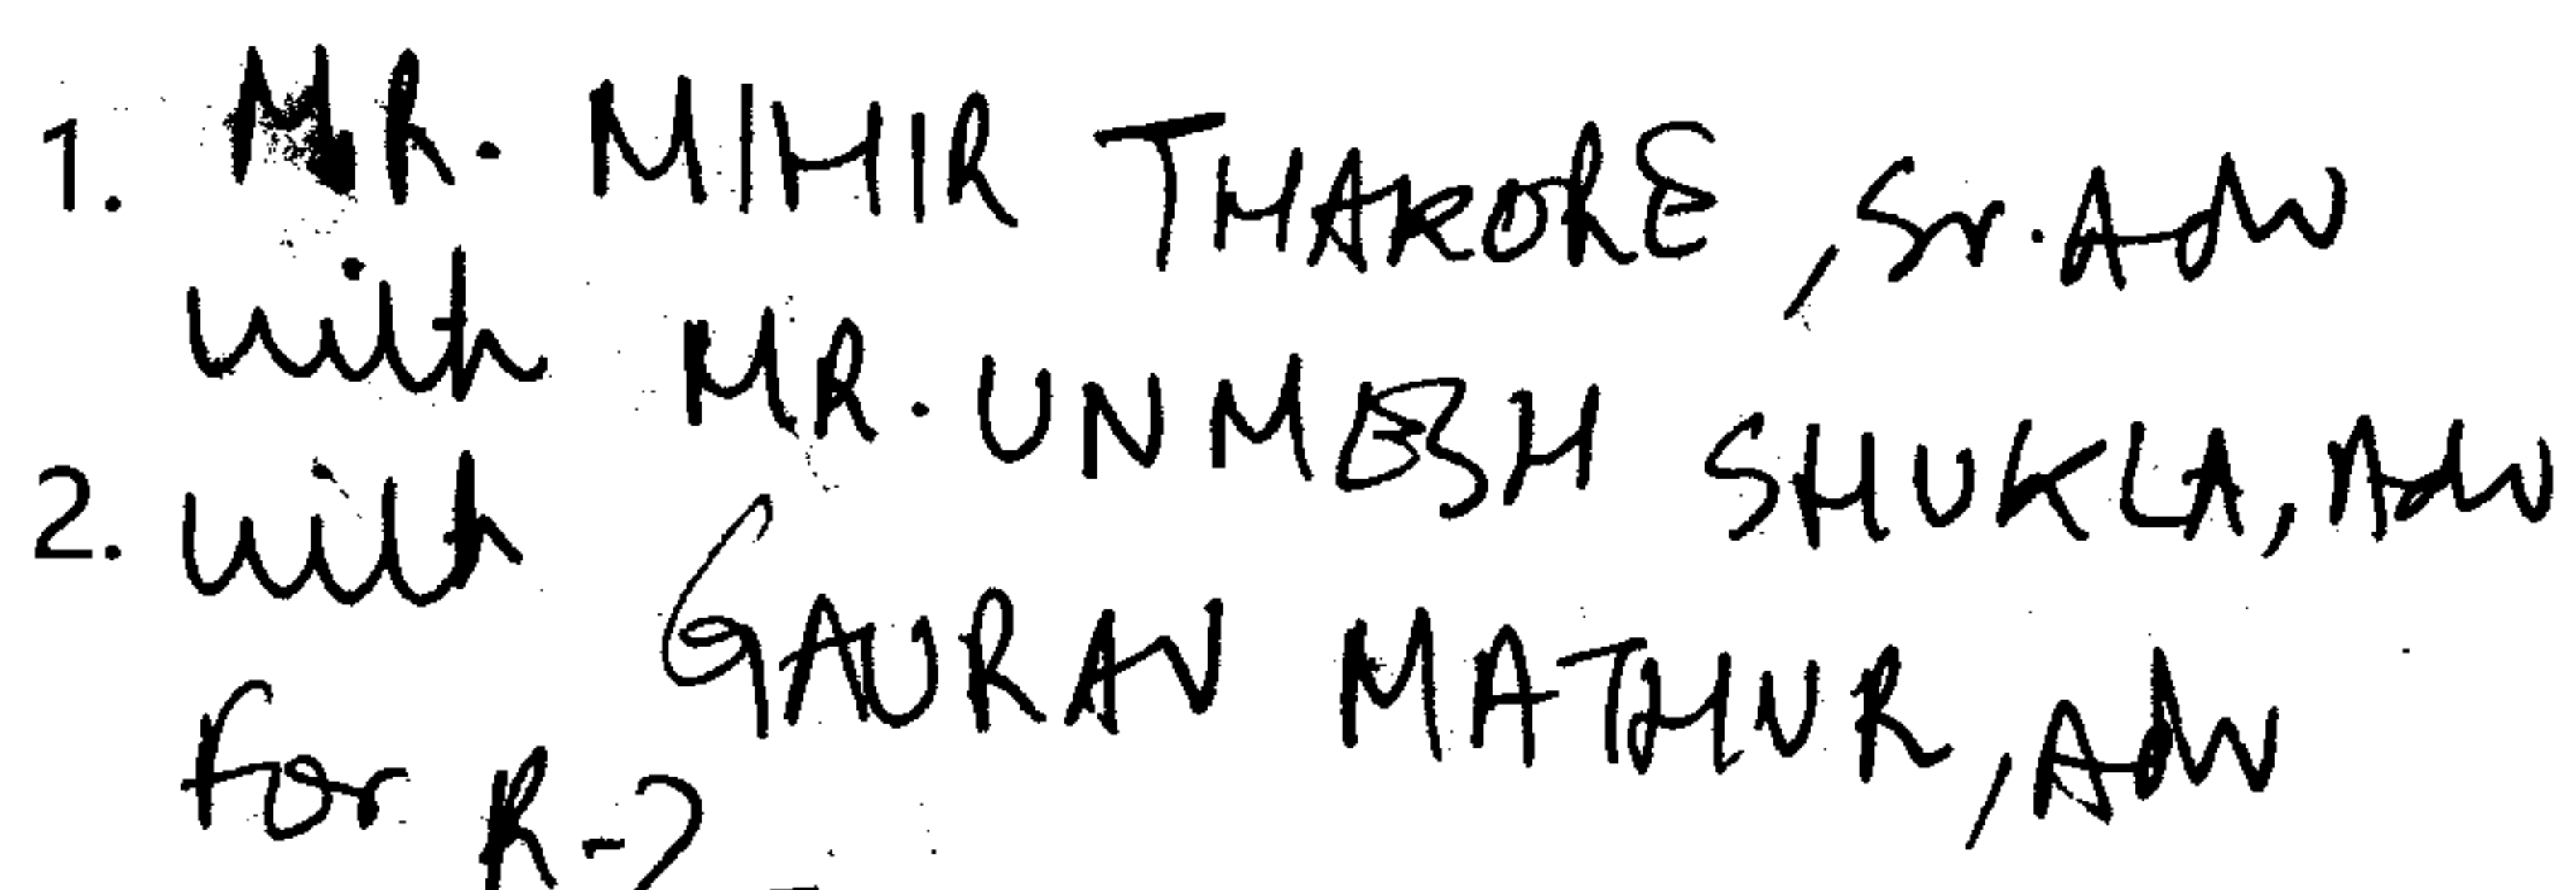 1. MR. MIHIR THAKORE, Sr. Adv
with MR. UNMESH SHUKLA, Adv
2. with GAURAV MATHUR, Adv
for R-2